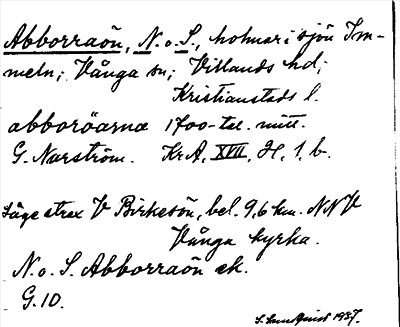 Abborraön, N. o. S., holmar i sjön Im-
meln; Vånga sn; Villands hd;
Kristianstads l.
abboröarna 1700-tal. mitt.
G. Narström. KrA, XVII, H, 1, b.
Läge strax V Birkeön, bel. 9,6 km. NNV
Vånga kyrka.
N. o. S. Abborraön ek.
G. 10.
S. Lundquist 1937.